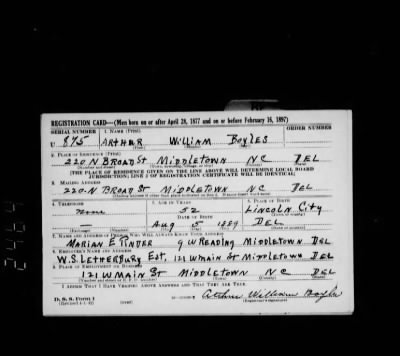 REGISTRATION CARD—(Men born on or after April 28, 1877 and on or before February 16, 1897)
SERIAL NUMBER 1. NAME (Print) ORDER NUMBER
U 875 ARTHUR William Boyles
2. PLACE OF RESIDENCE (Print)
220-N BROAD St MIDDLETOWN NC DEL
[THE PLACE OF RESIDENCE GIVEN ON THE LINE ABOVE WILL DETERMINE LOCAL BOARD
JURISDICTION; LINE 2 OF REGISTRATION CERTIFICATE WILL BE IDENTICAL]
3. MAILING ADDRESS
220-N BROAD St MIDDLETOWN NC DEL
4. TELEPHONE 5. AGE IN YEARS 6. PLACE OF BIRTH
none 52 LINCOLN City
DATE OF BIRTH
— Aug 5 1889 DEL
7. NAME AND ADDRESS OF PERSON WHO WILL ALWAYS KNOW YOUR ADDRESS
MARIAN E TINDER 9 W READING MIDDLETOWN DEL
8. EMPLOYER'S NAME AND ADDRESS
W.S. LETHERBURY Est, 121 W MAIN St MIDDLETOWN DEL
9. PLACE OF EMPLOYMENT OR BUSINESS
121 W MAIN St MIDDLETOWN NC DEL
I AFFIRM THAT I HAVE VERIFIED ABOVE ANSWERS AND THAT THEY ARE TRUE.
D. S. S. Form 1
(Revised 4-1-42) (over) Arthur William Boyles
2484